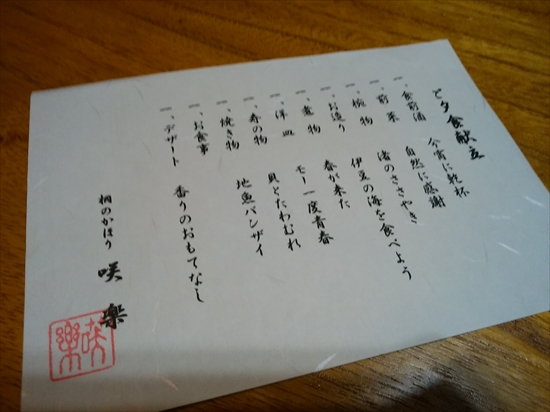 ご夕食献立
一、食前酒 今宵に乾杯
一、前菜 自然に感謝
一、椀物 渚のささやき
一、お造り 伊豆の海を食べよう
一、煮物 春が来た
一、洋皿 モー一度青春
一、寿の物 貝とたわむれ
一、焼き物 地魚バンザイ
一、お食事
一、デザート 香りのおもてなし
桐のかほり 咲楽
咲樂